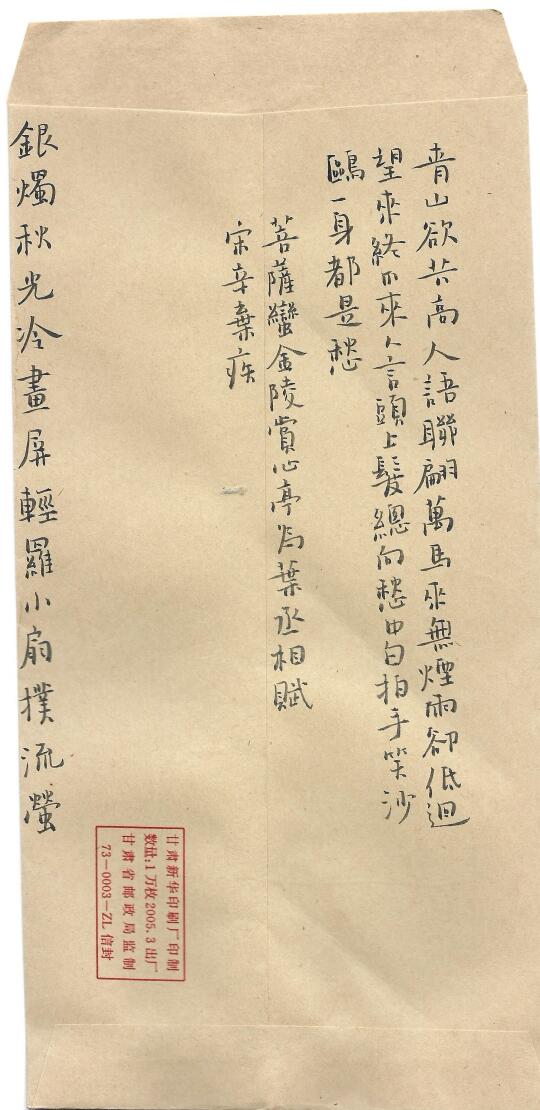 青山欲共高人語聯翩萬馬來無煙雨卻低迴
望來終不來人言頭上髮總向愁中白拍手笑沙
鷗一身都是愁
菩薩蠻金陵賞心亭為葉丞相賦
宋辛棄疾
銀燭秋光冷畫屏輕羅小扇撲流螢
甘肃新华印刷厂印制
数量:1万枚2005.3出厂
甘肃省邮政局监制
73-0003-ZL信封